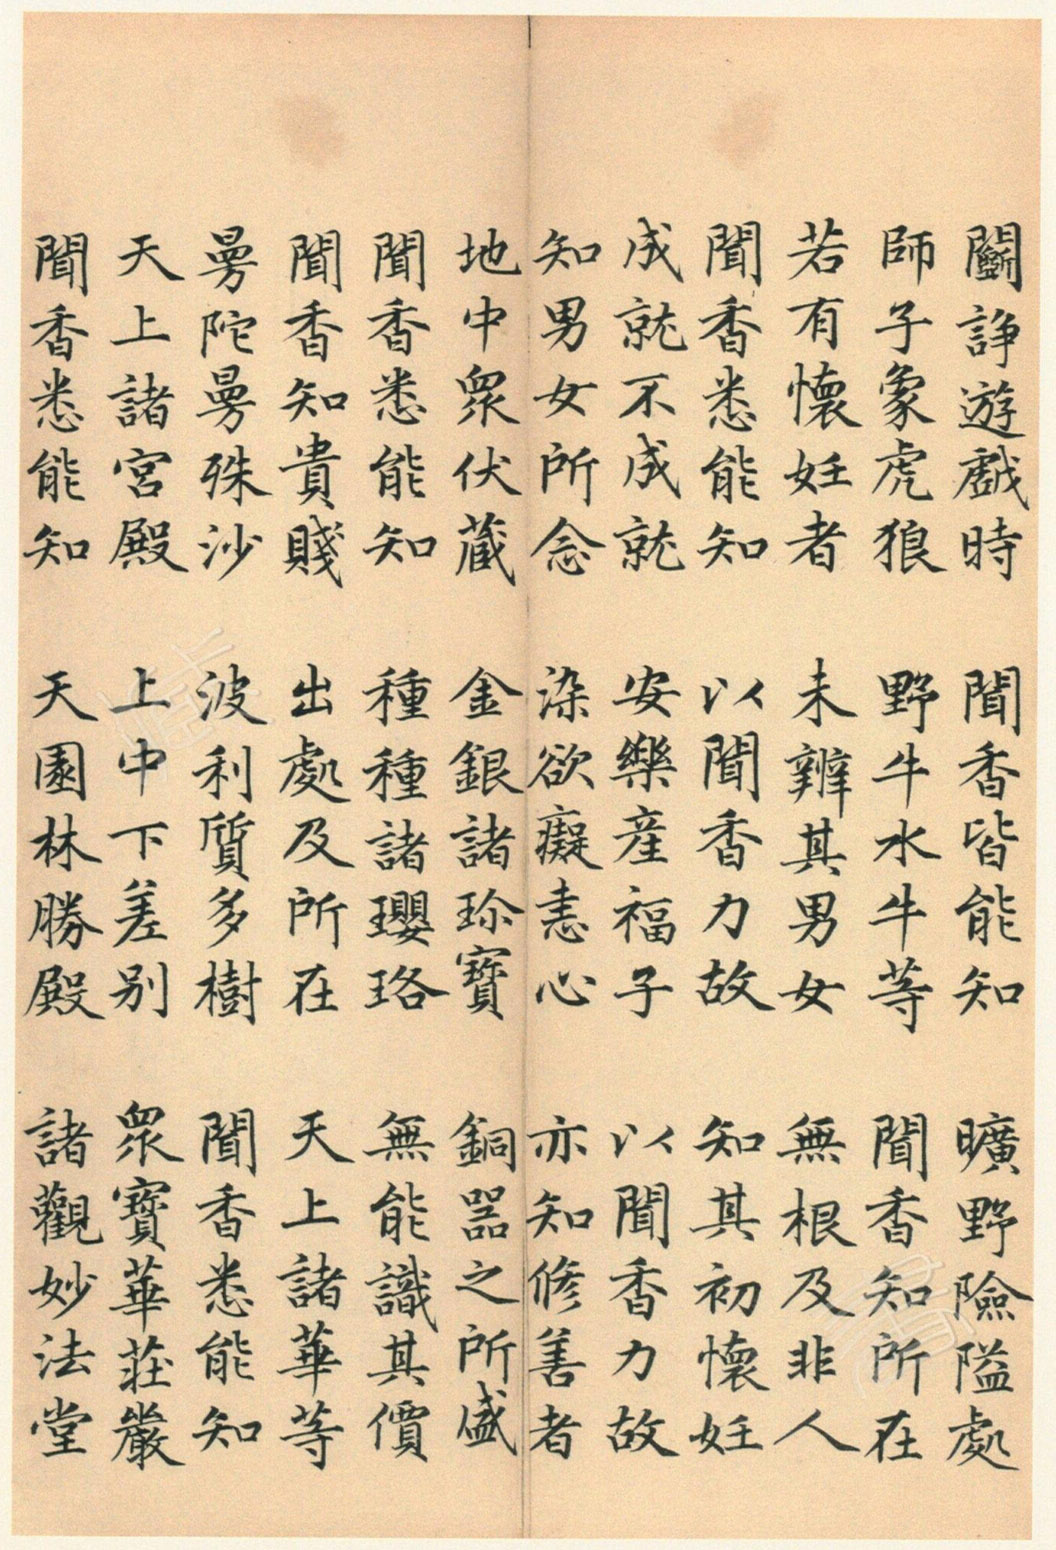 鬭諍遊戲時 聞香皆能知 曠野險隘處
師子象虎狼 野牛水牛等 聞香知所在
若有懷妊者 未辨其男女 無根及非人
聞香悉能知 以聞香力故 知其初懷妊
成就不成就 安樂産福子 以聞香力故
知男女所念 染欲癡恚心 亦知修善者
地中衆伏藏 金銀諸珍寶 銅器之所盛
聞香悉能知 種種諸瓔珞 無能識其價
聞香知貴賤 出處及所在 天上諸華等
曼陀曼殊沙 波利質多樹 聞香悉能知
天上諸宮殿 上中下差别 衆寶華莊嚴
聞香悉能知 天園林勝殿 諸觀妙法堂